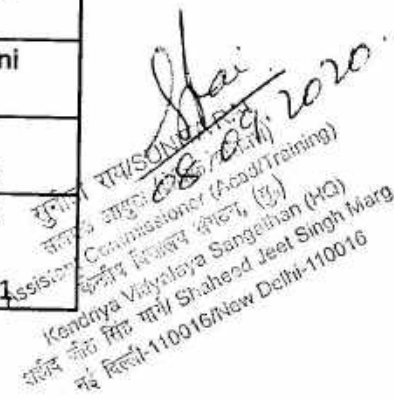 ni
Rai
08.09.2020.
सुनीता राय/SUN
सहायक आयुक्त
Assistant Commissioner (Acad/Training)
केन्द्रीय विद्यालय संगठन, (मु.)
Kendriya Vidyalaya Sangathan (HQ)
शहीद जीत सिंह मार्ग/ Shaheed Jeet Singh Marg
नई दिल्ली-110016/New Delhi-110016
1